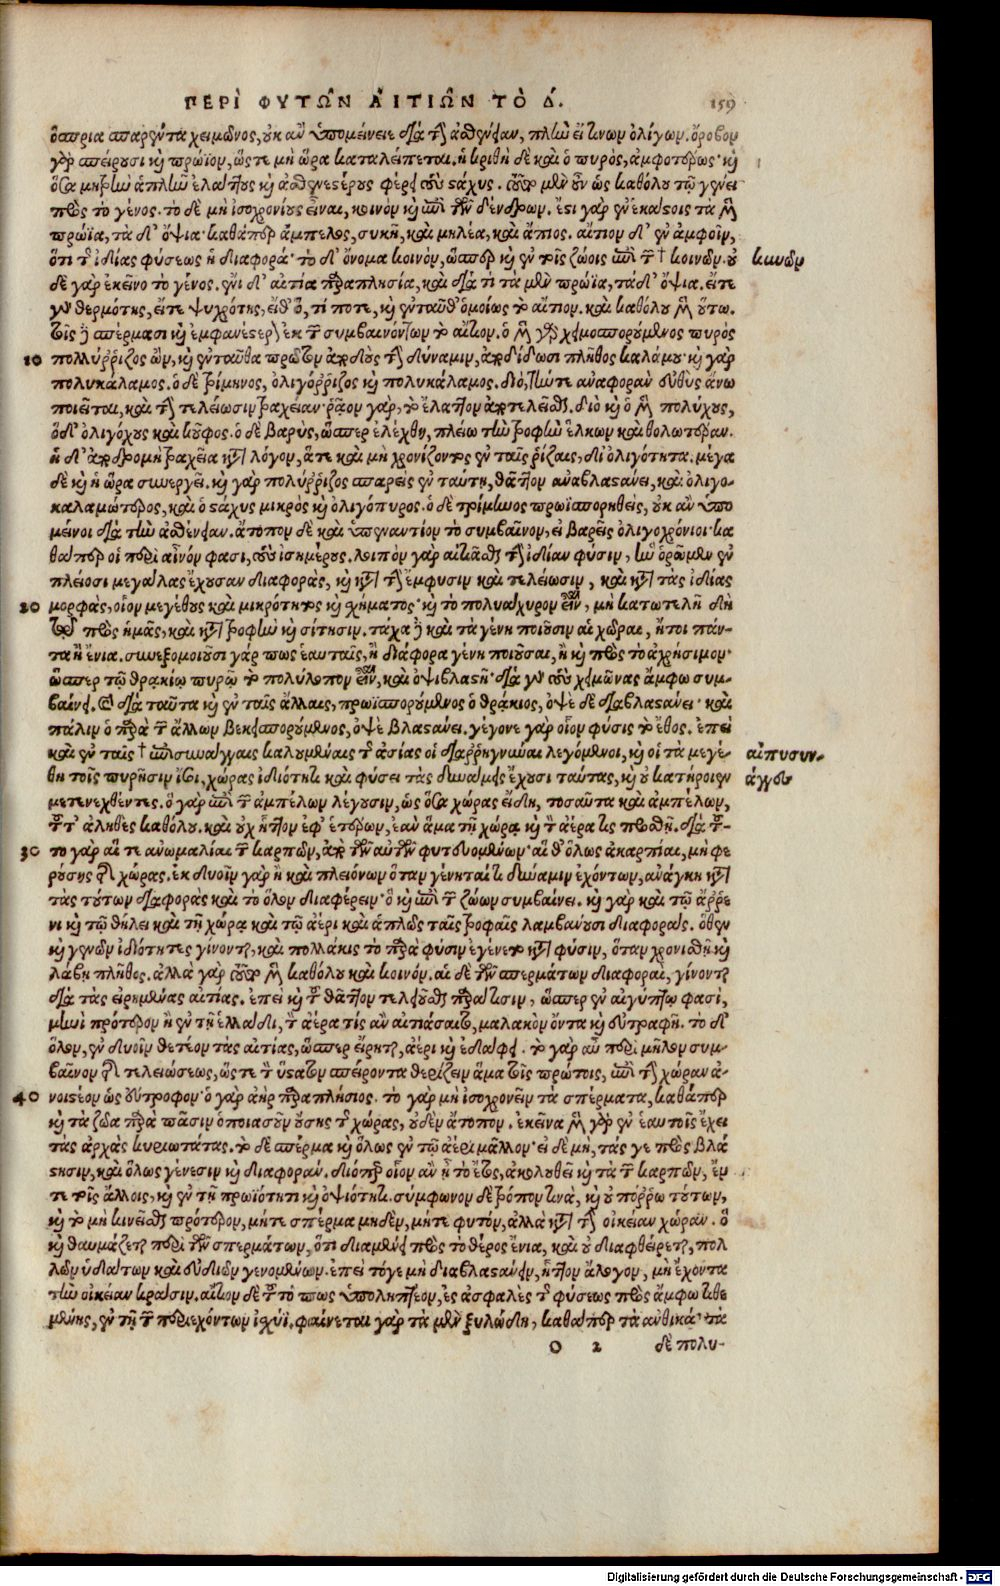 ΠΕΡῚ ΦΥΤΩ͂Ν ΑἸΤΙΩ͂Ν ΤῸ Δ. 159
ὄσπρια σπαρέντα χειμῶνος, οὐκ ἂν ὑπομείνειε διὰ τὴν ἀσθένειαν, πλὴν εἴ τινων ὀλίγων. ὄροβον
γὰρ σπείρουσι καὶ πρώϊον, ὥστε μὴ ὥρα καταλείπεται. ἡ κριθὴ δὲ καὶ ὁ πυρὸς, ἀμφοτέρως· καὶ
ὅσα μὴν ἁπλῶς ἐλάττους καὶ ἀσθενεστέρους φέρει τοὺς στάχυς. οὕτω μὲν οὖν ὡς καθόλου τῷ γένει
πρὸς τὸ γένος. τὸ δὲ μὴ ἰσοχρονίους εἶναι, κοινὸν καὶ ἐπὶ τῶν δένδρων. ἔστι γὰρ ἐν ἑκάστοις τὰ μὲν
πρώϊα, τὰ δ' ὄψια· καθάπερ ἄμπελος, συκῆ, καὶ μηλέα, καὶ ἄπιος. αἴτιον δ' ἐν ἀμφοῖν,
ὅτι τῆς ἰδίας φύσεως ἡ διαφορά· τὸ δ' ὄνομα κοινὸν, ὥσπερ καὶ ἐν τοῖς ζώοις ἐπὶ τῶν † κοινῶν. οὐ κυνῶν
δὲ γὰρ ἐκεῖνο τὸ γένος. ἔνι δ' αἰτία παραπλησία, καὶ διὰ τί τὰ μὲν πρώϊα, τὰ δ' ὄψια. εἴτε
γοῦν θερμότης, εἴτε ψυχρότης, εἴθ' ὅ, τί ποτε, καὶ ἐνταῦθ' ὁμοίως τὸ αἴτιον. καὶ καθόλου μὲν οὕτω.
τοῖς δὲ σπέρμασι καὶ ἐμφανέστερον ἐκ τῶν συμβαινόντων τὸ αἴτιον. ὁ μὲν γὰρ χειμοσπορούμενος πυρὸς
10 πολύρριζος ὢν, καὶ ἐνταῦθα πρῶτον ἀποδοὺς τὴν δύναμιν, ἀποδίδωσι πλῆθος καλάμου· καὶ γὰρ
πολυκάλαμος. ὁ δὲ τρίμηνος, ὀλιγόρριζος καὶ πολυκάλαμος. διὸ, τήν τε ἀναφορὰν εὐθὺς ἄνω
ποιεῖται, καὶ τὴν τελείωσιν ταχεῖαν· ῥᾷον γὰρ, τὸ ἔλαττον ἀποτελειοῦσθαι. διὸ καὶ ὁ μὲν πολύχους,
ὁ δ' ὀλιγόχους καὶ κοῦφος. ὁ δὲ βαρὺς, ὥσπερ ἐλέχθη, πλείω τὴν τροφὴν ἕλκων καὶ θολωτέραν.
ἡ δ' ἀποδρομὴ ταχεῖα κατὰ λόγον, ἅτε καὶ μὴ χρονίζοντος ἐν ταῖς ῥίζαις, δι' ὀλιγότητα. μέγα
δὲ καὶ ἡ ὥρα συνεργεῖ. καὶ γὰρ πολύρριζος σπαρεὶς ἐν ταύτῃ, θᾶττον ἀναβλαστάνει, καὶ ὀλιγο-
καλαμώτερος, καὶ ὁ στάχυς μικρὸς καὶ ὀλιγόπυρος. ὁ δὲ τρίμηνος πρωϊσπορηθεὶς, οὐκ ἂν ὑπο
μείνοι διὰ τὴν ἀσθένειαν. ἄτοπον δὲ καὶ ὑπεναντίον τὸ συμβαῖνον, εἰ βαρεῖς ὀλιγοχρόνιοι· κα
θάπερ οἱ περὶ αἶνόν φασι, τοὺς ἰσημέρους. λοιπὸν γὰρ αἰτιᾶσθαι τὴν ἰδίαν φύσιν, ἣν ὁρῶμεν ἐν
πλείοσι μεγάλας ἔχουσαν διαφορὰς, καὶ κατὰ τὴν ἔμφυσιν καὶ τελείωσιν, καὶ κατὰ τὰς ἰδίας
20 μορφὰς, οἷον μεγέθους καὶ μικρότητος καὶ σχήματος· καὶ τὸ πολυάχυρον εἶναι, μὴ κατωτελῆ δὴ
τῷ πρὸς ἡμᾶς, καὶ κατὰ τροφὴν καὶ σίτησιν. τάχα δὲ καὶ τὰ γένη ποιοῦσιν αἱ χῶραι, ἤτοι πάν-
τα ἢ ἔνια. συνεξομοιοῦσι γάρ πως ἑαυταῖς, ἢ διάφορα γένη ποιοῦσαι, ἢ καὶ πρὸς τὸ ἀχρήσιμον·
ὥσπερ τῷ θρακίῳ πυρῷ τὸ πολύλοπον εἶναι, καὶ ὀψιβλαστῆ· διὰ γὰρ τοὺς χειμῶνας ἄμφω συμ-
βαίνει. διὰ ταῦτα καὶ ἐν ταῖς ἄλλαις, πρωϊσπορούμενος ὁ θράκιος, ὀψὲ δὲ διαβλαστάνει· καὶ
πάλιν ὁ παρὰ τῶν ἄλλων ἐκσπορούμενος, ὀψὲ βλαστάνει. γέγονε γὰρ οἷον φύσις τὸ ἔθος. ἐπεὶ
καὶ ἐν ταῖς † ἐπισυνάγγαις καλουμέναις τῆς ἀσίας οἱ διαρρηγνύναι λεγόμενοι, καὶ οἱ τὰ μεγέ- αἰπυσυν-
θη τοῖς πυρῆσιν ἴσοι, χώρας ἰδιότητι καὶ φύσει τὰς δυνάμεις ἔχουσι ταύτας, καὶ οὐ κατήροιεν ἀγγου
μετενεχθέντες. ὃ γὰρ ἐπὶ τῶν ἀμπέλων λέγουσιν, ὡς ὅσα χώρας εἴδη, τοσαῦτα καὶ ἀμπέλων,
τοῦτ' ἀληθὲς καθόλου. καὶ οὐχ ἧττον ἐφ' ἑτέρων, ἐὰν ἅμα τῇ χώρᾳ καὶ τὸν ἀέρα τις προσθῇ. διὰ τοῦ-
30 το γὰρ αἵ τε ἀνωμαλίαι τῶν καρπῶν, ἀπὸ τῶν αὐτῶν φυτευομένων· αἵ θ' ὅλως ἀκαρπίαι, μὴ φε
ρούσης τῆς χώρας. ἐκ δυοῖν γὰρ ἢ καὶ πλειόνων ὅταν γένηταί τι δύναμιν ἐχόντων, ἀνάγκη κατὰ
τὰς τούτων διαφορὰς καὶ τὸ ὅλον διαφέρειν· ὃ καὶ ἐπὶ τῶν ζώων συμβαίνει. καὶ γὰρ καὶ τῷ ἄρρε
νι καὶ τῷ θήλει καὶ τῇ χώρᾳ καὶ τῷ ἀέρι καὶ ἁπλῶς ταῖς τροφαῖς λαμβάνουσι διαφοράς. ὅθεν
καὶ γενῶν ἰδιότητες γίνονται, καὶ πολλάκις τὸ παρὰ φύσιν ἐγένετο κατὰ φύσιν, ὅταν χρονισθῇ καὶ
λάβῃ πλῆθος. ἀλλὰ γὰρ οὕτω μὲν καθόλου καὶ κοινόν. αἱ δὲ τῶν σπερμάτων διαφοραὶ, γίνονται
διὰ τὰς εἰρημένας αἰτίας. ἐπεὶ καὶ τοῦ θᾶττον τελειοῦσθαι παράτασιν, ὥσπερ ἐν αἰγύπτῳ φασὶ,
μηνὶ πρότερον ἢ ἐν τῇ ἑλλάδι, τὸν ἀέρα τίς ἂν αἰτιάσαιτο, μαλακὸν ὄντα καὶ εὐτραφῆ. τὸ δ'
ὅλον, ἐν δυοῖν θετέον τὰς αἰτίας, ὥσπερ εἴρηται, ἀέρι καὶ ἐδάφει. τὸ γὰρ αὖ περὶ μῆλον συμ-
βαῖνον τῆς τελειώσεως, ὥστε τὸν ὕστατον σπείροντα θερίζειν ἅμα τοῖς πρώτοις, ἐπὶ τὴν χώραν ἀ-
40 νοιστέον ὡς εὔτροφον· ὁ γὰρ ἀὴρ παραπλήσιος. τὸ γὰρ μὴ ἰσοχρονεῖν τὰ σπέρματα, καθάπερ
καὶ τὰ ζῶα παρὰ πᾶσιν ὁποιασοῦν οὔσης τῆς χώρας, οὐδὲν ἄτοπον. ἐκεῖνα μὲν γὰρ ἐν ἑαυτοῖς ἔχει
τὰς ἀρχὰς κυριωτάτας. τὸ δὲ σπέρμα καὶ ὅλως ἐν τῷ ἀέρι μᾶλλον· εἰ δὲ μὴ, τάς γε πρὸς βλά
στησιν, καὶ ὅλως γένεσιν καὶ διαφοράν. διόπερ οἷον ἂν ᾖ τὸ ἔτος, ἀκολουθεῖ καὶ τὰ τῶν καρπῶν, ἔν
τε τοῖς ἄλλοις, καὶ ἐν τῇ πρωϊότητι καὶ ὀψιότητι. σύμφωνον δὲ τρόπον τινὰ, καὶ οὐ πόρρω τούτων,
καὶ τὸ μὴ κινεῖσθαι πρότερον, μήτε σπέρμα μηδὲν, μήτε φυτὸν, ἀλλὰ κατὰ τὴν οἰκείαν χώραν. ὃ
καὶ θαυμάζεται περὶ τῶν σπερμάτων, ὅτι διαμένει πρὸς τὸ θέρος ἔνια, καὶ οὐ διαφθείρεται, πολ
λῶν ὑδάτων καὶ εὐδιῶν γενομένων. ἐπεὶ τό γε μὴ διαβλαστάνειν, ἧττον ἄλογον, μὴ ἔχοντα
τὴν οἰκείαν κρᾶσιν. αἴτιον δὲ τοῦτό πως ὑποληπτέον, ἐς ἀσφαλὲς τῆς φύσεως πρὸς ἄμφω τιθε
μένης, ἐν τῇ τῶν περιεχόντων ἰσχύϊ. φαίνεται γὰρ τὰ μὲν ξυλώδη, καθάπερ τὰ ἀνθικά· τὰ
O 2 δὲ πολυ-
Digitalisierung gefördert durch die Deutsche Forschungsgemeinschaft - DFG